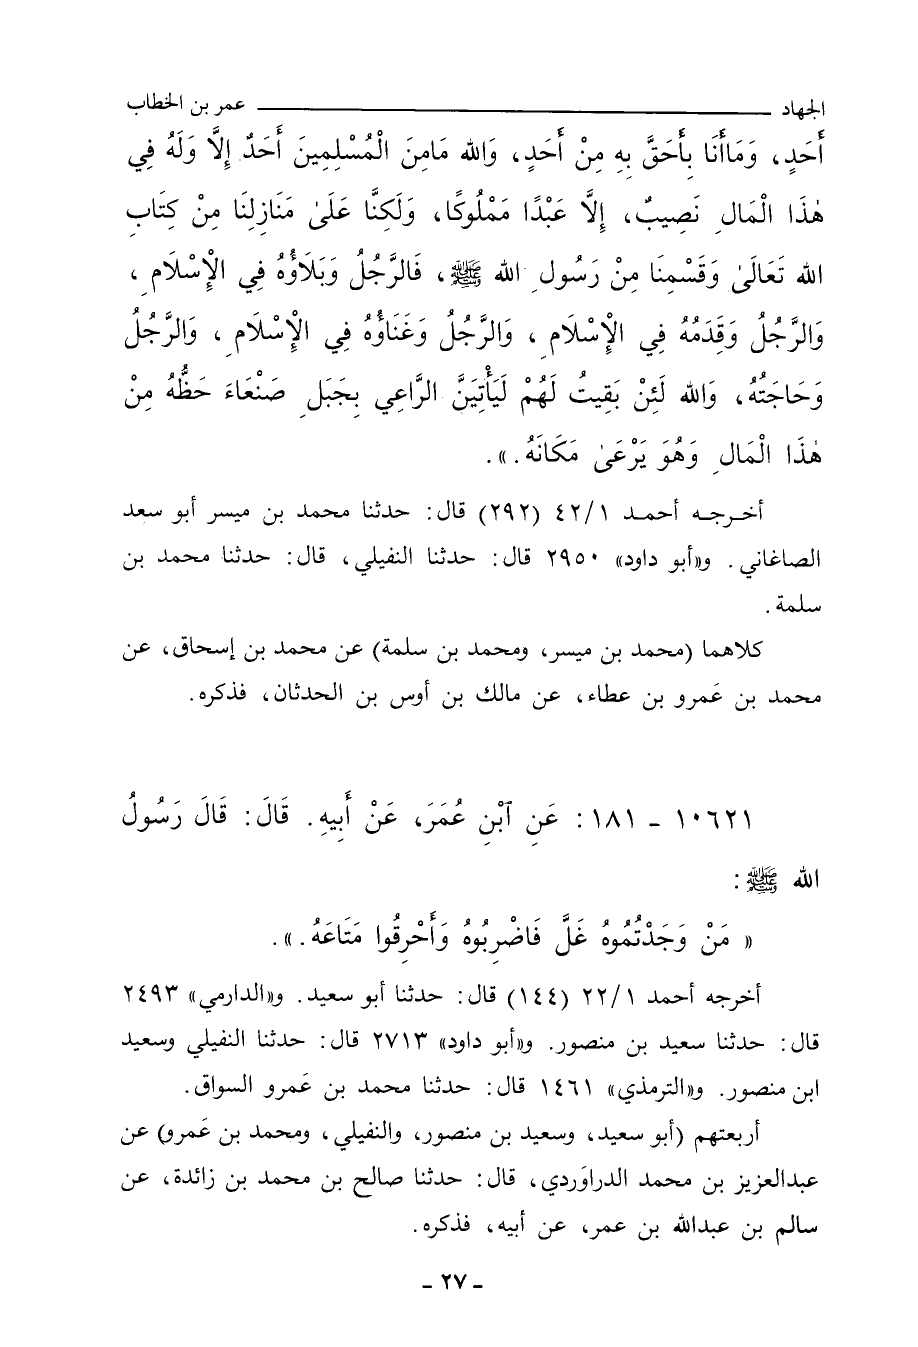 الجهاد ــــــــــــــــ عمر بن الخطاب
أَحَدٍ، وَمَاأَنَا بِأَحَقَّ بِهِ مِنْ أَحَدٍ، وَالله مَامِنَ الْمُسْلِمِينَ أَحَدٌ إِلاَّ وَلَهُ فِي
هٰذَا الْمَالِ نَصِيبٌ، إِلَّا عَبْدًا مَمْلُوكًا، وَلَكِنَّا عَلَىٰ مَنَازِلِنَا مِنْ كِتَابِ
الله تَعَالَىٰ وَقَسْمِنَا مِنْ رَسُولِ الله ﷺ، فَالرَّجُلُ وَبَلَاؤُهُ فِي الْإِسْلَامِ،
وَالرَّجُلُ وَقِدَمُهُ فِي الْإِسْلَامِ، وَالرَّجُلُ وَغَنَاؤُهُ فِي الْإِسْلَامِ، وَالرَّجُلُ
وَحَاجَتُهُ، وَالله لَئِنْ بَقِيتُ لَهُمْ لَيَأْتِيَنَّ الرَّاعِي بِجَبَلِ صَنْعَاءَ حَظُّهُ مِنْ
هٰذَا الْمَالِ وَهُوَ يَرْعَىٰ مَكَانَهُ.».
أخرجه أحمد ٤٢/١ (٢٩٢) قال: حدثنا محمد بن ميسر أبو سعد
الصاغاني. و«أبو داود» ٢٩٥٠ قال: حدثنا النفيلي، قال: حدثنا محمد بن
سلمة.
كلاهما (محمد بن ميسر، ومحمد بن سلمة) عن محمد بن إسحاق، عن
محمد بن عَمرو بن عطاء، عن مالك بن أوس بن الحدثان، فذكره.
١٠٦٢١ ـ ١٨١: عَنِ ٱبْنِ عُمَرَ، عَنْ أَبِيهِ. قَالَ: قَالَ رَسُولُ
الله ﷺ:
« مَنْ وَجَدْتُمُوهُ غَلَّ فَاضْرِبُوهُ وَأَحْرِقُوا مَتَاعَهُ.».
أخرجه أحمد ٢٢/١ (١٤٤) قال: حدثنا أبو سعيد. و«الدارمي» ٢٤٩٣
قال: حدثنا سعيد بن منصور. و«أبو داود» ٢٧١٣ قال: حدثنا النفيلي وسعيد
ابن منصور. و«الترمذي» ١٤٦١ قال: حدثنا محمد بن عَمرو السواق.
أربعتهم (أبو سعيد، وسعيد بن منصور، والنفيلي، ومحمد بن عَمرو) عن
عبدالعزيز بن محمد الدراوَردي، قال: حدثنا صالح بن محمد بن زائدة، عن
سالم بن عبدالله بن عمر، عن أبيه، فذكره.
ـ ٢٧ ـ